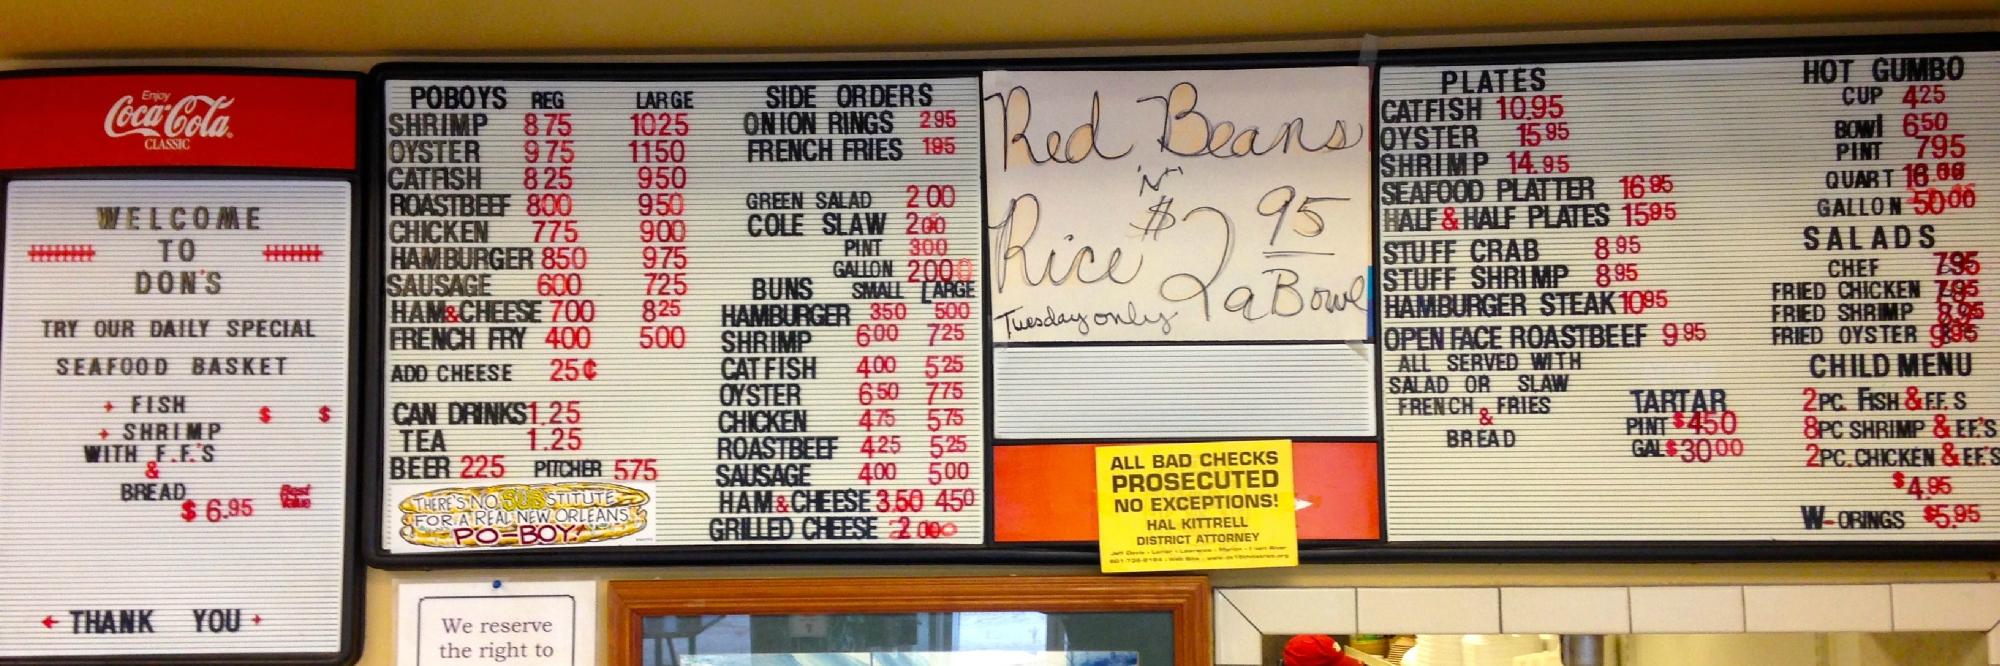 Enjoy
Coca-Cola
CLASSIC
WELCOME
TO
DON'S
TRY OUR DAILY SPECIAL
SEAFOOD BASKET
+ FISH $ $
+ SHRIMP
WITH F.F.'S
&
BREAD
$ 6.95 Best Value
THANK YOU
POBOYS REG LARGE
SHRIMP 875 1025
OYSTER 975 1150
CATFISH 825 950
ROASTBEEF 800 950
CHICKEN 775 900
HAMBURGER 850 975
SAUSAGE 600 725
HAM&CHEESE 700 825
FRENCH FRY 400 500
ADD CHEESE 25¢
CAN DRINKS 1.25
TEA 1.25
BEER 225 PITCHER 575
THERE'S NO SUBSTITUTE
FOR A REAL NEW ORLEANS
PO-BOY!
SIDE ORDERS
ONION RINGS 295
FRENCH FRIES 195
GREEN SALAD 200
COLE SLAW 200
PINT 300
GALLON 2000
BUNS SMALL LARGE
HAMBURGER 350 500
SHRIMP 600 725
CATFISH 400 525
OYSTER 650 775
CHICKEN 475 575
ROASTBEEF 425 525
SAUSAGE 400 500
HAM&CHEESE 3.50 450
GRILLED CHEESE 2.00
Red Beans
'N'
Rice $2 95
Tuesday only a Bowl
ALL BAD CHECKS
PROSECUTED
NO EXCEPTIONS!
HAL KITTRELL
DISTRICT ATTORNEY
PLATES
CATFISH 10.95
OYSTER 15 95
SHRIMP 14.95
SEAFOOD PLATTER 16 95
HALF & HALF PLATES 15 95
STUFF CRAB 8 95
STUFF SHRIMP 8 95
HAMBURGER STEAK 10 95
OPEN FACE ROASTBEEF 9 95
ALL SERVED WITH
SALAD OR SLAW
FRENCH FRIES
&
BREAD
TARTAR
PINT $4 50
GAL $30 00
HOT GUMBO
CUP 4 25
BOWl 6 50
PINT 7 95
QUART 16.00
GALLON 50 00
SALADS
CHEF 7.95
FRIED CHICKEN 7.95
FRIED SHRIMP 8.95
FRIED OYSTER 9.95
CHILD MENU
2PC. FISH & F.F. S
8PC SHRIMP & F.F.'S
2PC. CHICKEN & F.F.'S
$4.95
W- ORINGS $5.95
We reserve
the right to